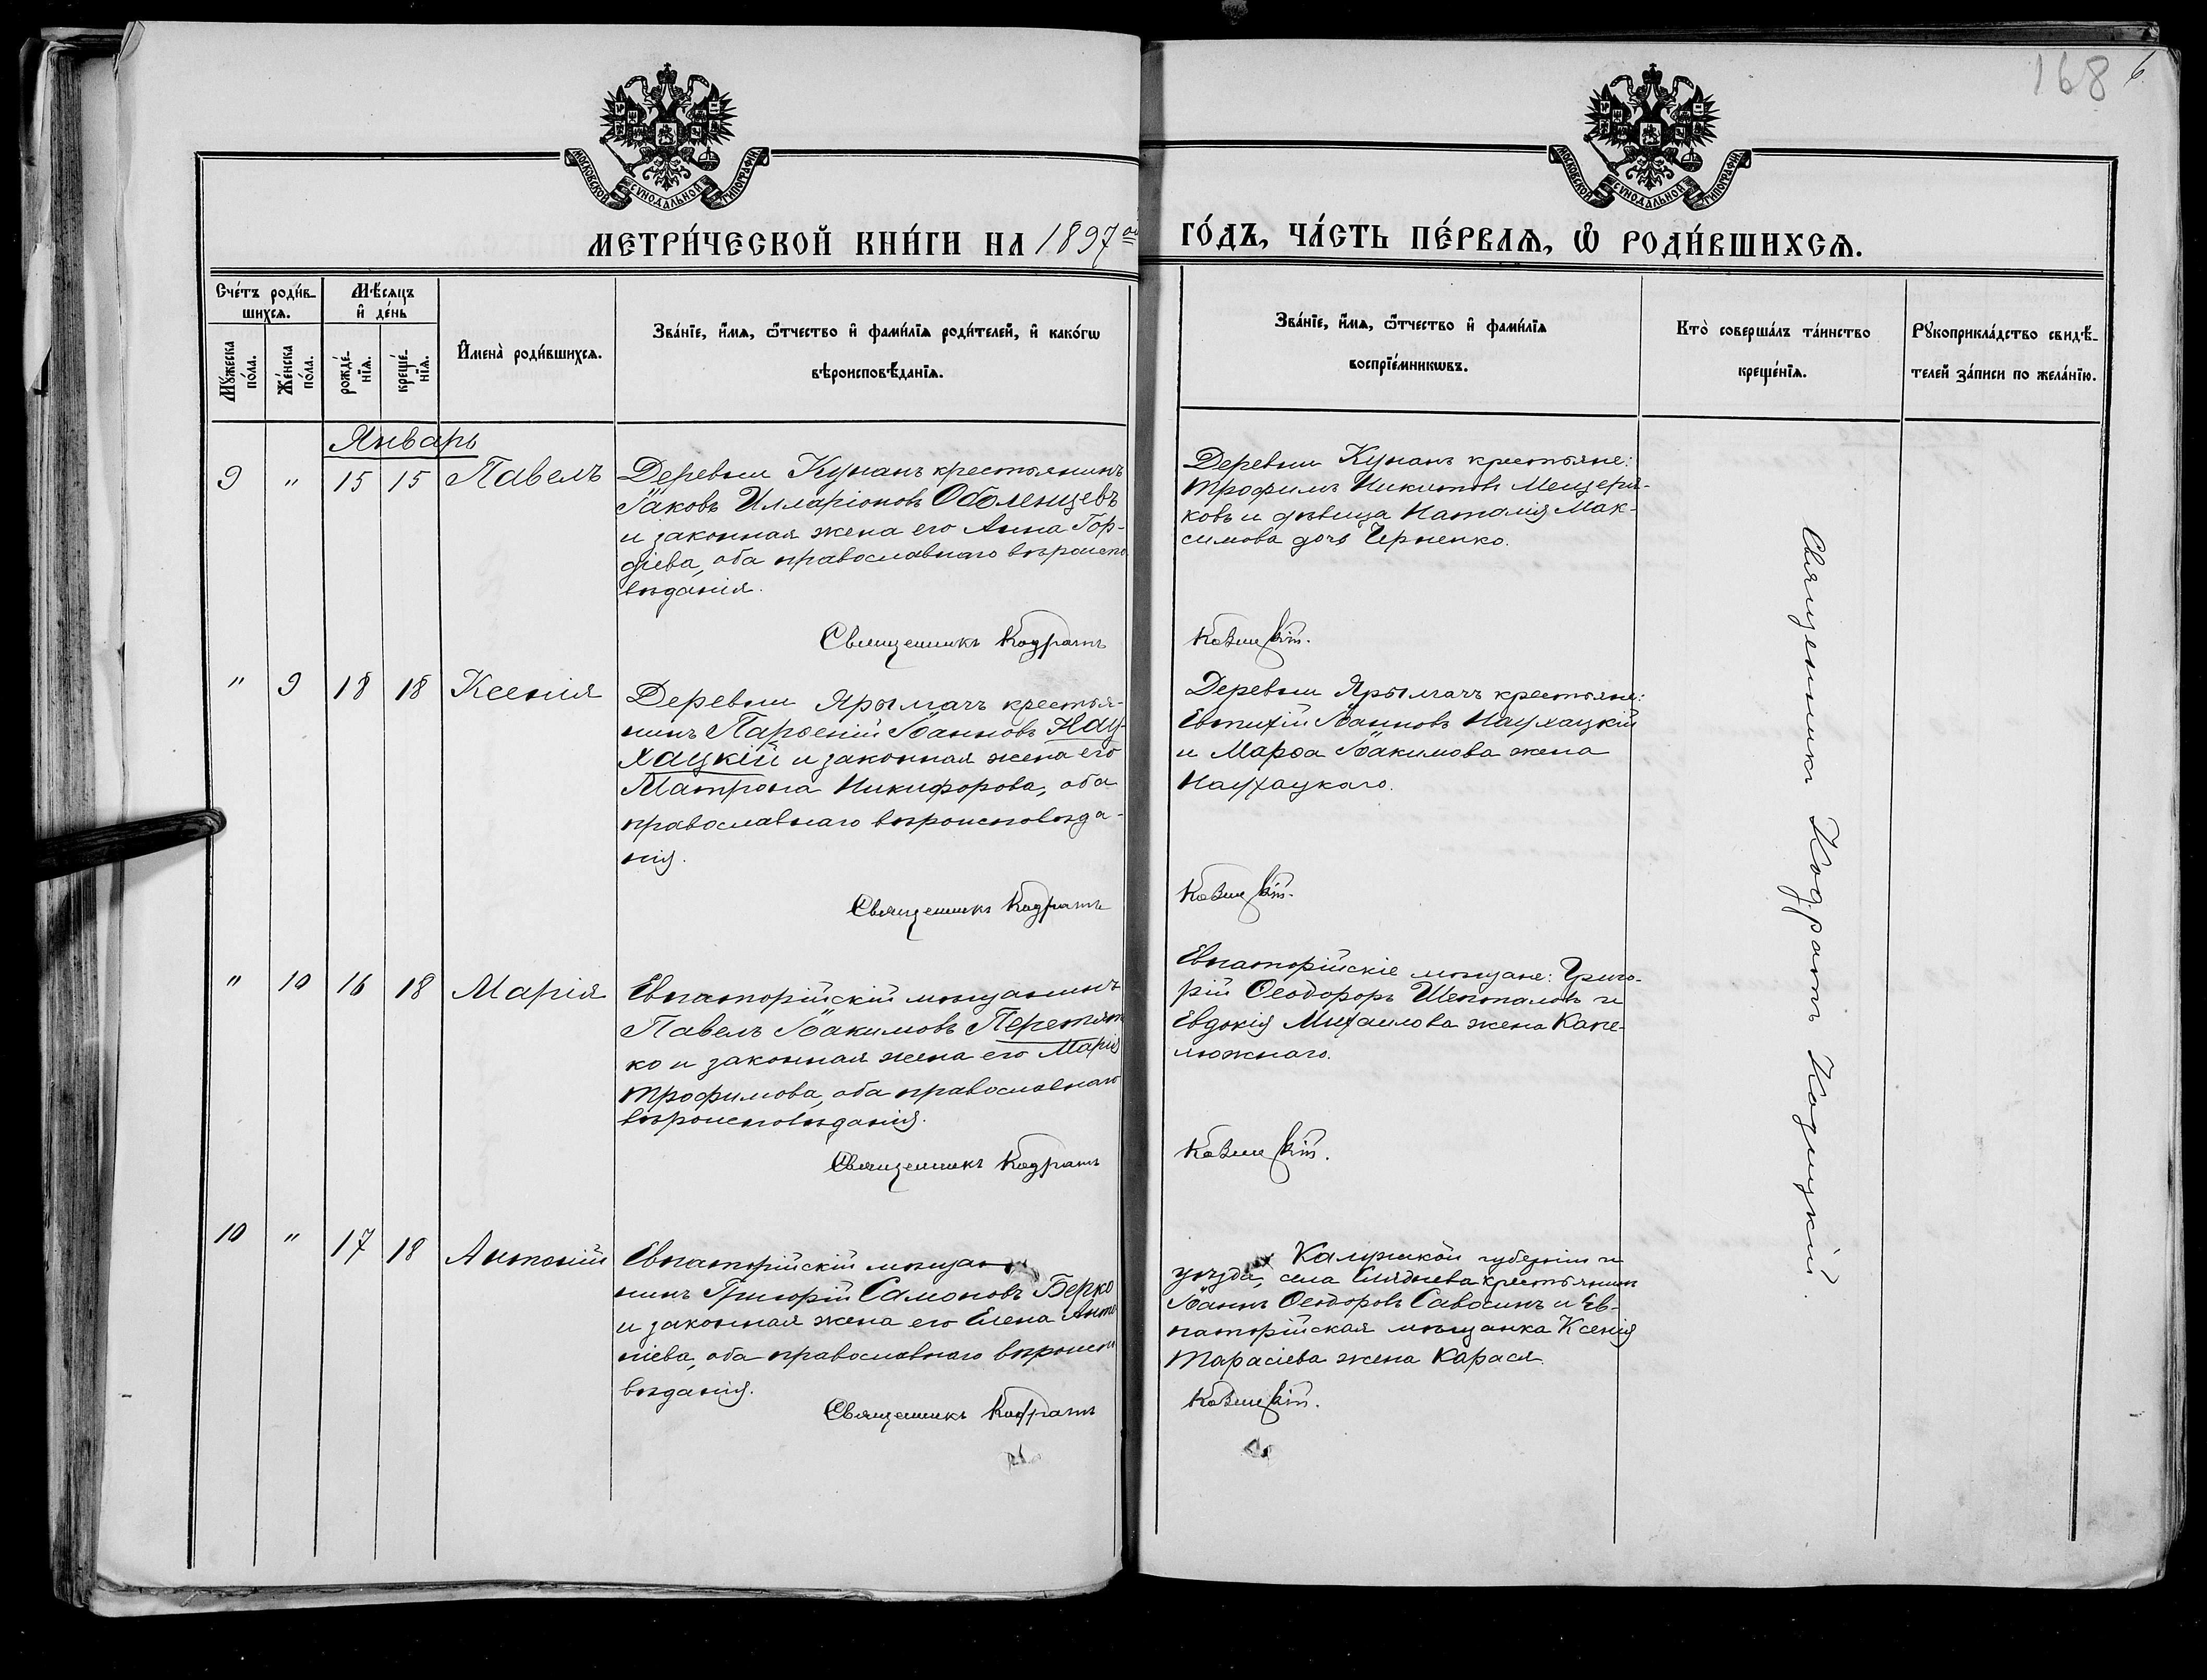 168
6
МОСКОВСКОЙ СѴНОДАЛЬНОЙ ТИПОГРАФІИ
МОСКОВСКОЙ СѴНОДАЛЬНОЙ ТИПОГРАФІИ
МЕТРИ́ЧЕСКОЙ КНИ́ГИ НА 1897ой ГО́ДЪ, ЧА́СТЬ ПЕ́РВАѦ, Ѽ РОДИ́ВШИХСѦ.
Сче́тъ роди́в-
шихсѧ.
Мѣ́сяцъ
и҆ де́нь
Мꙋ́жеска
по́ла.
Же́нска
по́ла.
рожде́-
нїѧ.
креще́-
нїѧ.
И҆мена̀ роди́вшихсѧ.
Зва́нїе, и҆́мѧ, ѻ҆́тчество и҆ фами́лїѧ роди́телей, и҆ како́гѡ
вѣроисповѣ́данїѧ.
Зва́нїе, и҆́мѧ, ѻ҆́тчество и҆ фами́лїѧ
воспрїе́мникѡвъ.
Кто̀ соверша́лъ та́инство
креще́нїѧ.
Рꙋкоприкла́дство свидѣ́-
телей за́писи по жела́нїю.
Январь
9 " 15 15 Павелъ
Деревни Кунанъ крестьянинъ
Іаковъ Илларіоновъ Оболенцевъ
и законная жена его Анна Гор-
діева, оба православнаго вѣроиспо
вѣданія.
Священникъ Кодратъ
Деревни Кунанъ крестьяне:
Трофимъ Никитовъ Мещеря-
ковъ и дѣвица Наталія Мак-
симова дочь Черненко.
" 9 18 18 Ксенія
Деревни Ярылгачъ крестья-
нинъ Парѳеній Іоанновъ Нау-
хацкій и законная жена его
Матрона Никифорова, оба
православнаго вѣроисповѣда-
нія.
Священникъ Кодратъ
Деревни Ярылгачъ крестьяне:
Евтихій Іоанновъ Наухацкій
и Марѳа Іоакимова жена
Наухацкаго.
" 10 16 18 Марія
Евпаторійскій мѣщанинъ
Павелъ Іоакимовъ Перетят
ко и законная жена его Марія
Трофимова, оба православнаго
вѣроисповѣданія.
Священникъ Кодратъ
Евпаторійскіе мѣщане: Григо-
рій Ѳеодоровъ Шепталовъ и
Евдокія Михаилова жена Капе-
люжнаго.
10 " 17 18 Антоній
Евпаторійскій мѣща
нинъ Григорій Самоновъ Берко
и законная жена его Елена Анто
ніева, оба православнаго вѣроиспо
вѣданія.
Священникъ Кодратъ
Калужской губерніи и
уѣзда, села крестьянинъ
Іоаннъ Ѳеодоровъ Савосинъ и Ев-
паторійская мѣщанка Ксенія
Тарасіева жена Карася.
Священникъ Кодратъ